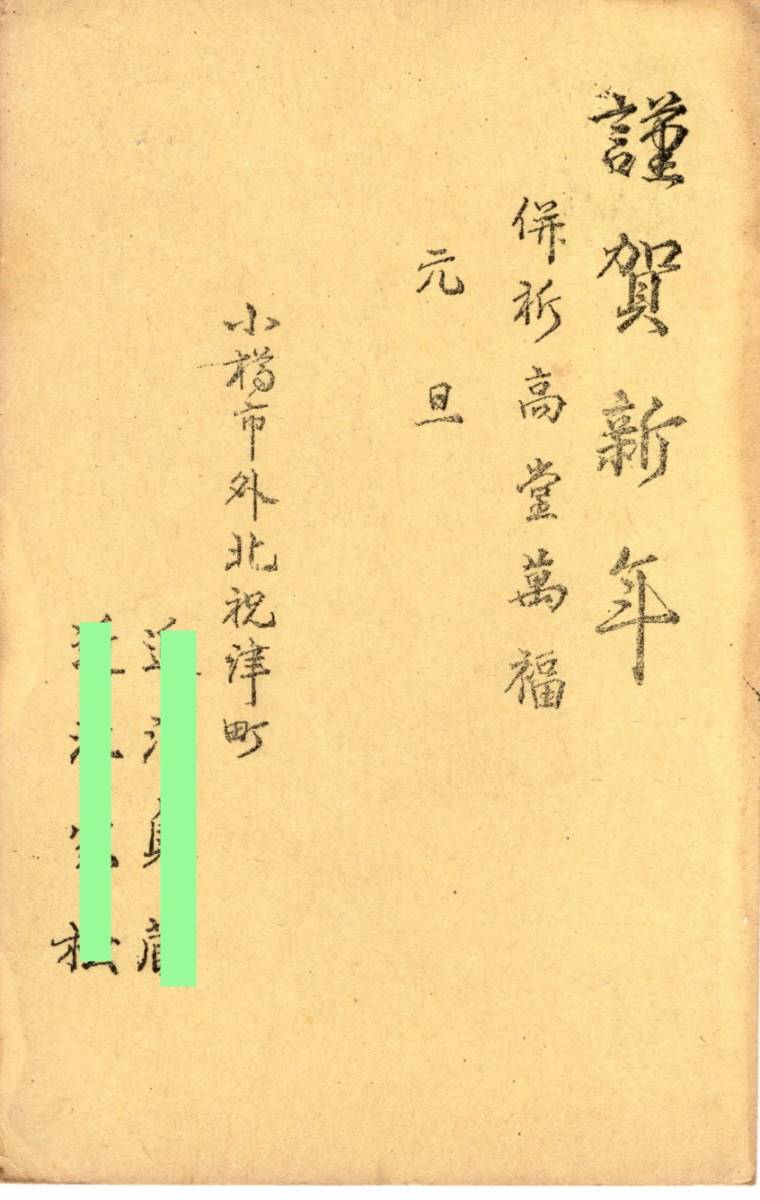 謹賀新年
併祈高堂萬福
元旦
小樽市外北祝津町